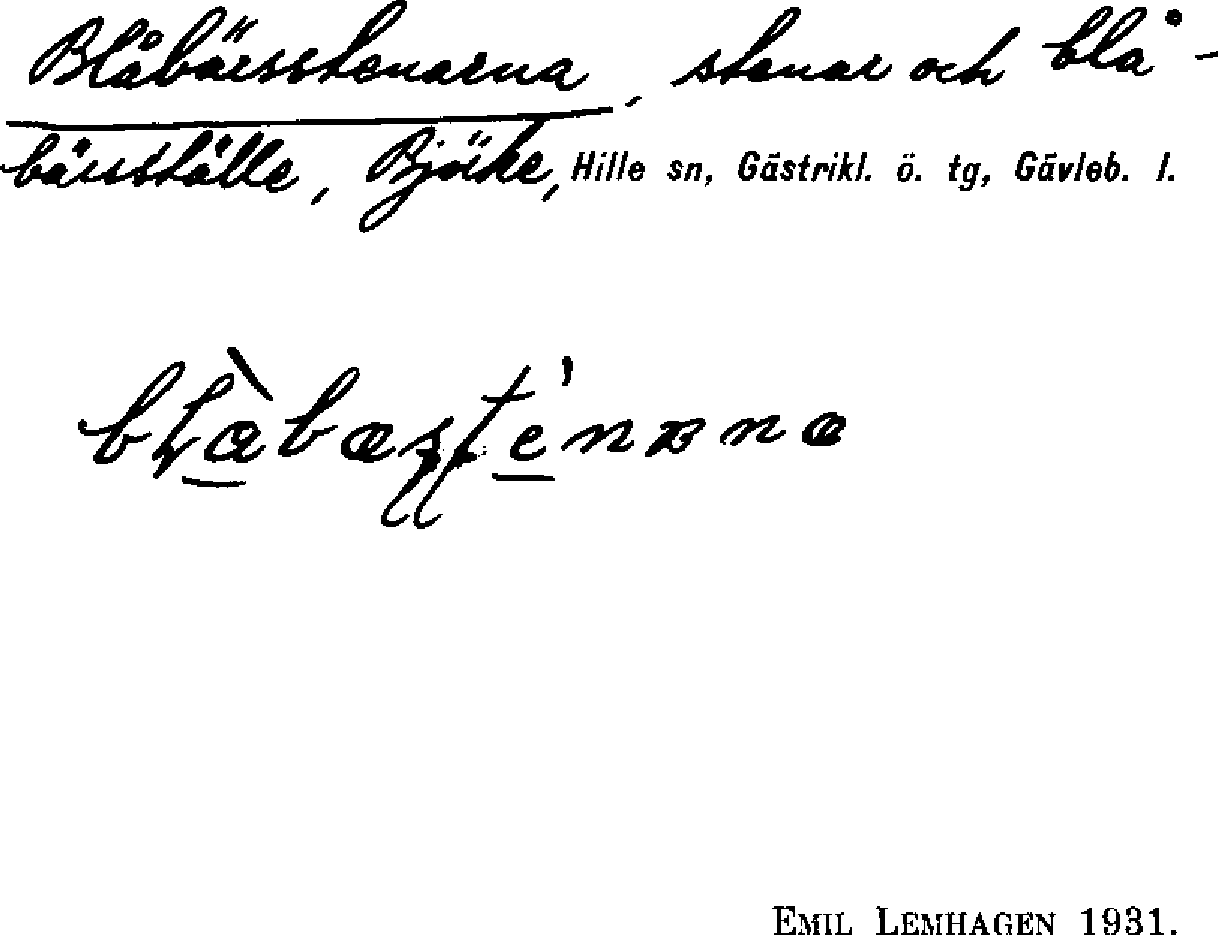 Blåbärsstenarna, stenar och blå-
bärsställe, Björke, Hille sn, Gästrikl. ö. tg, Gävleb. l.
EMIL LEMHAGEN 1931.